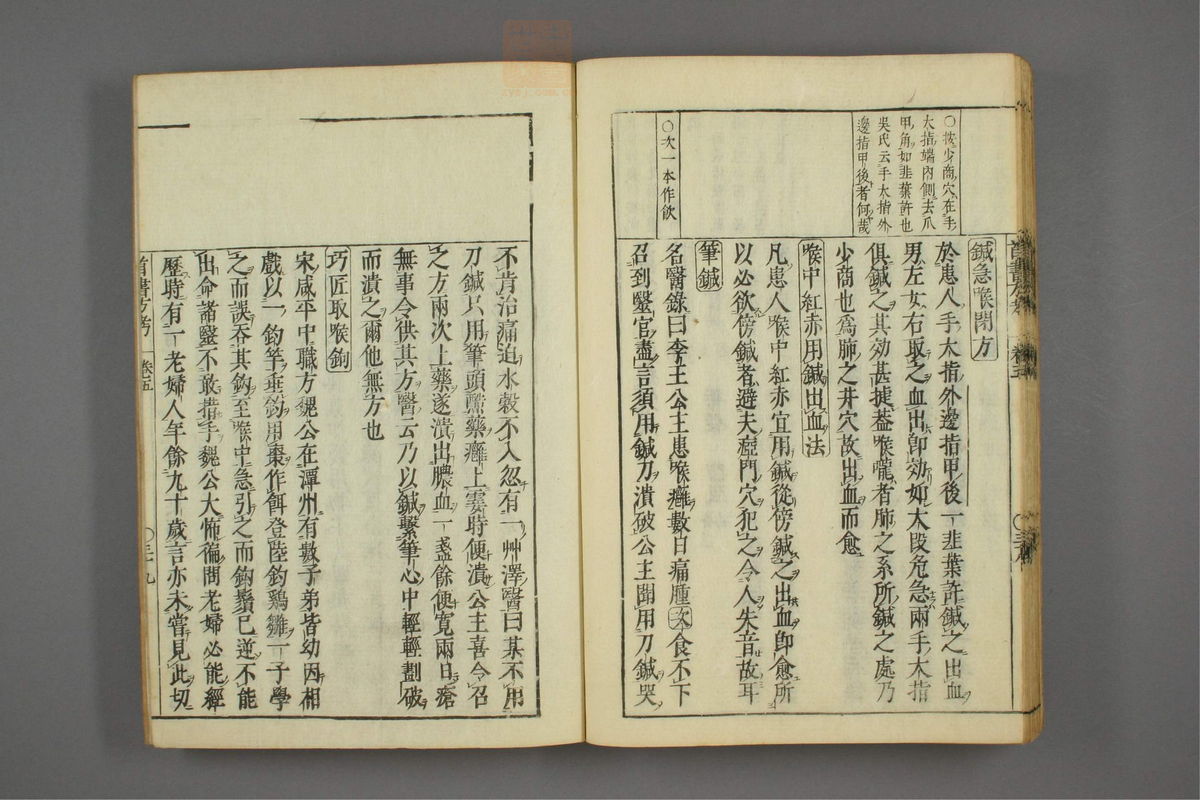 ○按少商穴在手
大指端內側去爪
甲角如韭葉許也
吳氏云手大指外
邊指甲後者何哉
○次一本作飲
鍼急喉閉方
於患人手大指外邊指甲後一韭葉許鍼之出血
男左女右取之血出卽効如大段危急兩手大指
俱鍼之其効甚捷葢喉嚨者肺之系所鍼之處乃
少商也爲肺之井穴故出血而愈
喉中紅赤用鍼出血法
凡患人喉中紅赤宜用鍼從傍鍼之出血卽愈所
以必欲傍鍼者避夫瘂門穴犯之令人失音故耳
筆鍼
名醫錄曰李王公主患喉癰數日痛腫次食不下
召到毉官盡言須用鍼刀潰破公主聞用刀鍼哭
不肯治痛迫水穀不入忽有一艸澤醫曰某不用
刀鍼只用筆頭蘸藥癰上霎時便潰公主喜令召
之方兩次上藥遂潰出膿血一盞餘便寬兩日瘡
無事令供其方醫云乃以鍼繫筆心中輕輕劃破
而潰之爾他無方也
巧匠取喉鉤
宋咸平中職方魏公在潭州有數子弟皆幼因相
戲以一鈎竿垂鈎用棗作餌登陸鈎鷄雛一子學
之而誤吞其鈎至喉中急引之而鈎鬚已逆不能
出命諸毉不敢措手魏公大怖徧問老婦必能經
歷時有一老婦人年餘九十歲言亦未嘗見此切
卷五
○三九